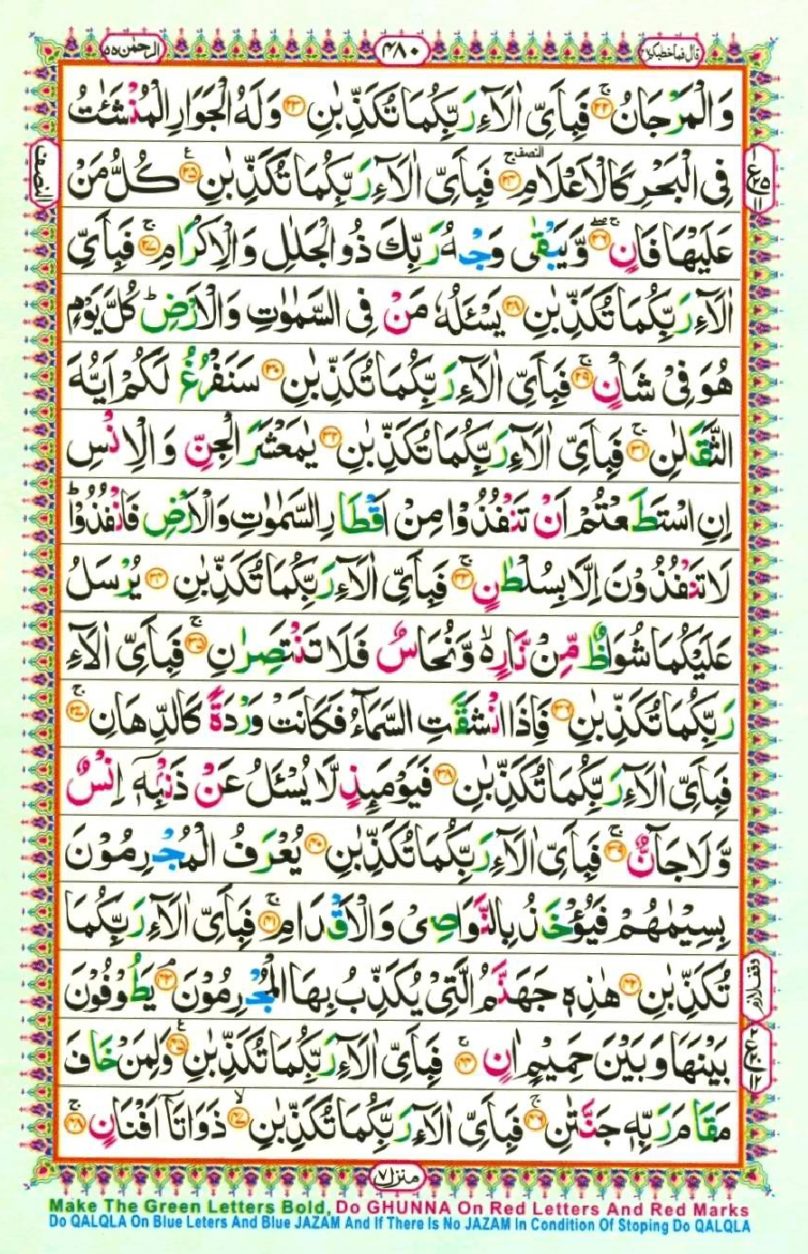 قال فما خطبكم ٢٧
٤٨٠
الرحمٰن ٥٥
وَالْمَرْجَانُ ۚ۝٢٢ فَبِاَىِّ اٰلَآءِ رَبِّكُمَا تُكَذِّبٰنِ ۝٢٣ وَلَهُ الْجَوَارِ الْمُنْشَئٰتُ
فِى الْبَحْرِ كَالْاَعْلَامِ ۚ۝٢٤ فَبِاَىِّ اٰلَآءِ رَبِّكُمَا تُكَذِّبٰنِ ۝٢٥ كُلُّ مَنْ
عَلَيْهَا فَانٍ ۚۖ۝٢٦ وَّيَبْقٰى وَجْهُ رَبِّكَ ذُو الْجَلٰلِ وَالْاِكْرَامِ ۚ۝٢٧ فَبِاَىِّ
اٰلَآءِ رَبِّكُمَا تُكَذِّبٰنِ ۝٢٨ يَسْئَلُهٗ مَنْ فِى السَّمٰوٰتِ وَالْاَرْضِ ؕ كُلَّ يَوْمٍ
هُوَ فِىْ شَاْنٍ ۚ۝٢٩ فَبِاَىِّ اٰلَآءِ رَبِّكُمَا تُكَذِّبٰنِ ۝٣٠ سَنَفْرُغُ لَكُمْ اَيُّهَ
الثَّقَلٰنِ ۚ۝٣١ فَبِاَىِّ اٰلَآءِ رَبِّكُمَا تُكَذِّبٰنِ ۝٣٢ يٰمَعْشَرَ الْجِنِّ وَالْاِنْسِ
اِنِ اسْتَطَعْتُمْ اَنْ تَنْفُذُوْا مِنْ اَقْطَارِ السَّمٰوٰتِ وَالْاَرْضِ فَانْفُذُوْا ؕ
لَا تَنْفُذُوْنَ اِلَّا بِسُلْطٰنٍ ۚ۝٣٣ فَبِاَىِّ اٰلَآءِ رَبِّكُمَا تُكَذِّبٰنِ ۝٣٤ يُرْسَلُ
عَلَيْكُمَا شُوَاظٌ مِّنْ نَّارٍ ۙ وَّنُحَاسٌ فَلَا تَنْتَصِرٰنِ ۚ۝٣٥ فَبِاَىِّ اٰلَآءِ
رَبِّكُمَا تُكَذِّبٰنِ ۝٣٦ فَاِذَا انْشَقَّتِ السَّمَآءُ فَكَانَتْ وَرْدَةً كَالدِّهَانِ ۚ۝٣٧
فَبِاَىِّ اٰلَآءِ رَبِّكُمَا تُكَذِّبٰنِ ۝٣٨ فَيَوْمَئِذٍ لَّا يُسْئَلُ عَنْ ذَنْۢبِهٖۤ اِنْسٌ
وَّلَا جَآنٌّ ۚ۝٣٩ فَبِاَىِّ اٰلَآءِ رَبِّكُمَا تُكَذِّبٰنِ ۝٤٠ يُعْرَفُ الْمُجْرِمُوْنَ
بِسِيْمٰهُمْ فَيُؤْخَذُ بِالنَّوَاصِىْ وَالْاَقْدَامِ ۚ۝٤١ فَبِاَىِّ اٰلَآءِ رَبِّكُمَا
تُكَذِّبٰنِ ۝٤٢ هٰذِهٖ جَهَنَّمُ الَّتِىْ يُكَذِّبُ بِهَا الْمُجْرِمُوْنَ ۘ۝٤٣ يَطُوْفُوْنَ
بَيْنَهَا وَبَيْنَ حَمِيْمٍ اٰنٍ ۚ۝٤٤ فَبِاَىِّ اٰلَآءِ رَبِّكُمَا تُكَذِّبٰنِ ۝٤٥ وَلِمَنْ خَافَ
مَقَامَ رَبِّهٖ جَنَّتٰنِ ۚ۝٤٦ فَبِاَىِّ اٰلَآءِ رَبِّكُمَا تُكَذِّبٰنِ ۙ۝٤٧ ذَوَاتَاۤ اَفْنَانٍ ۚ۝٤٨
النصف
وقف لازم
منزل ٧
Make The Green Letters Bold, Do GHUNNA On Red Letters And Red Marks
Do QALQLA On Blue Leters And Blue JAZAM And If There Is No JAZAM In Condition Of Stoping Do QALQLA